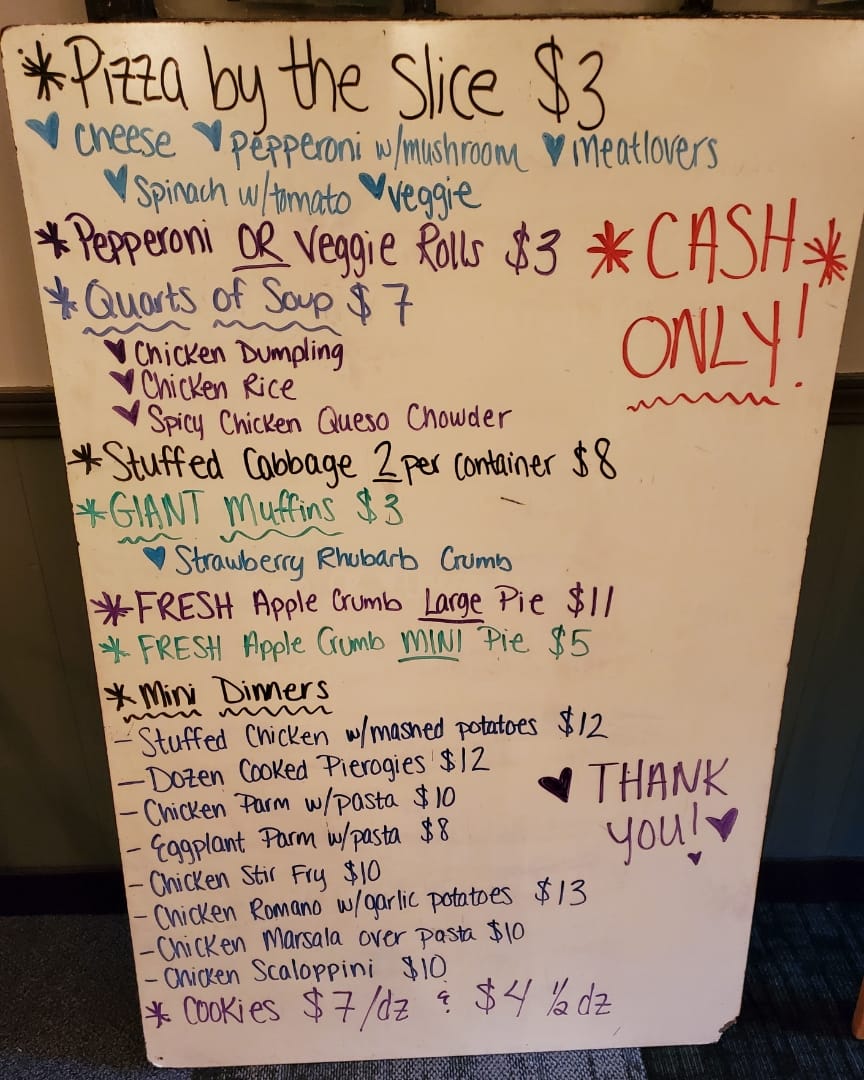 *Pizza by the Slice $3
♥ cheese ♥ Pepperoni w/mushroom ♥ meatlovers
♥ Spinach w/tomato ♥ veggie
*Pepperoni OR Veggie Rolls $3
*CASH*
ONLY!
*Quarts of Soup $7
♥ Chicken Dumpling
♥ Chicken Rice
♥ Spicy Chicken Queso Chowder
*Stuffed Cabbage 2 per container $8
*GIANT Muffins $3
♥ Strawberry Rhubarb Crumb
*FRESH Apple Crumb Large Pie $11
* FRESH Apple Crumb MINI Pie $5
*Mini Dinners
- Stuffed Chicken w/mashed potatoes $12
- Dozen Cooked Pierogies $12
- Chicken Parm w/pasta $10
- Eggplant Parm w/pasta $8
- Chicken Stir Fry $10
- Chicken Romano w/garlic potatoes $13
- Chicken Marsala over pasta $10
- Chicken Scaloppini $10
* Cookies $7/dz & $4 ½ dz
♥ THANK
YOU! ♥